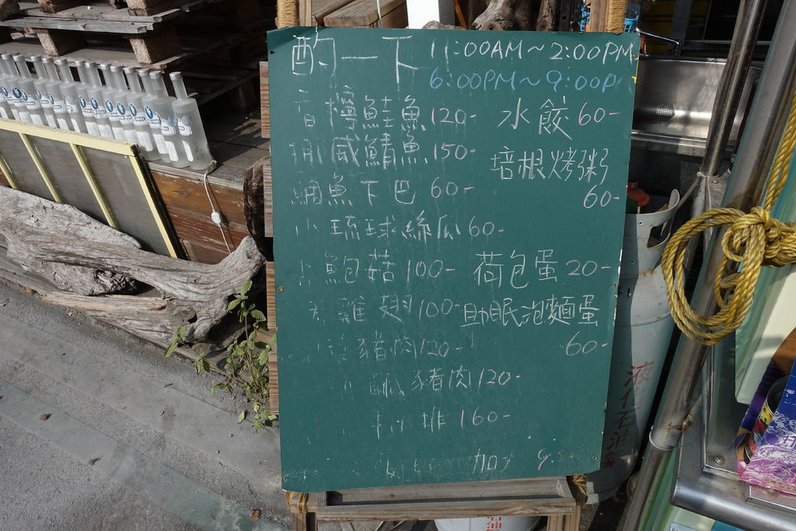 酌一下 11:00AM~2:00PM
6:00PM~9:00PM
檸鮭魚120-
挪威鯖魚150-
鯛魚下巴 60-
小琉球絲瓜60-
鮑菇100-
雞翅100-
豬肉120-
鹹豬肉120-
排160-
加
水餃60-
培根烤粥
60-
荷包蛋20-
助眠泡麵蛋
60-